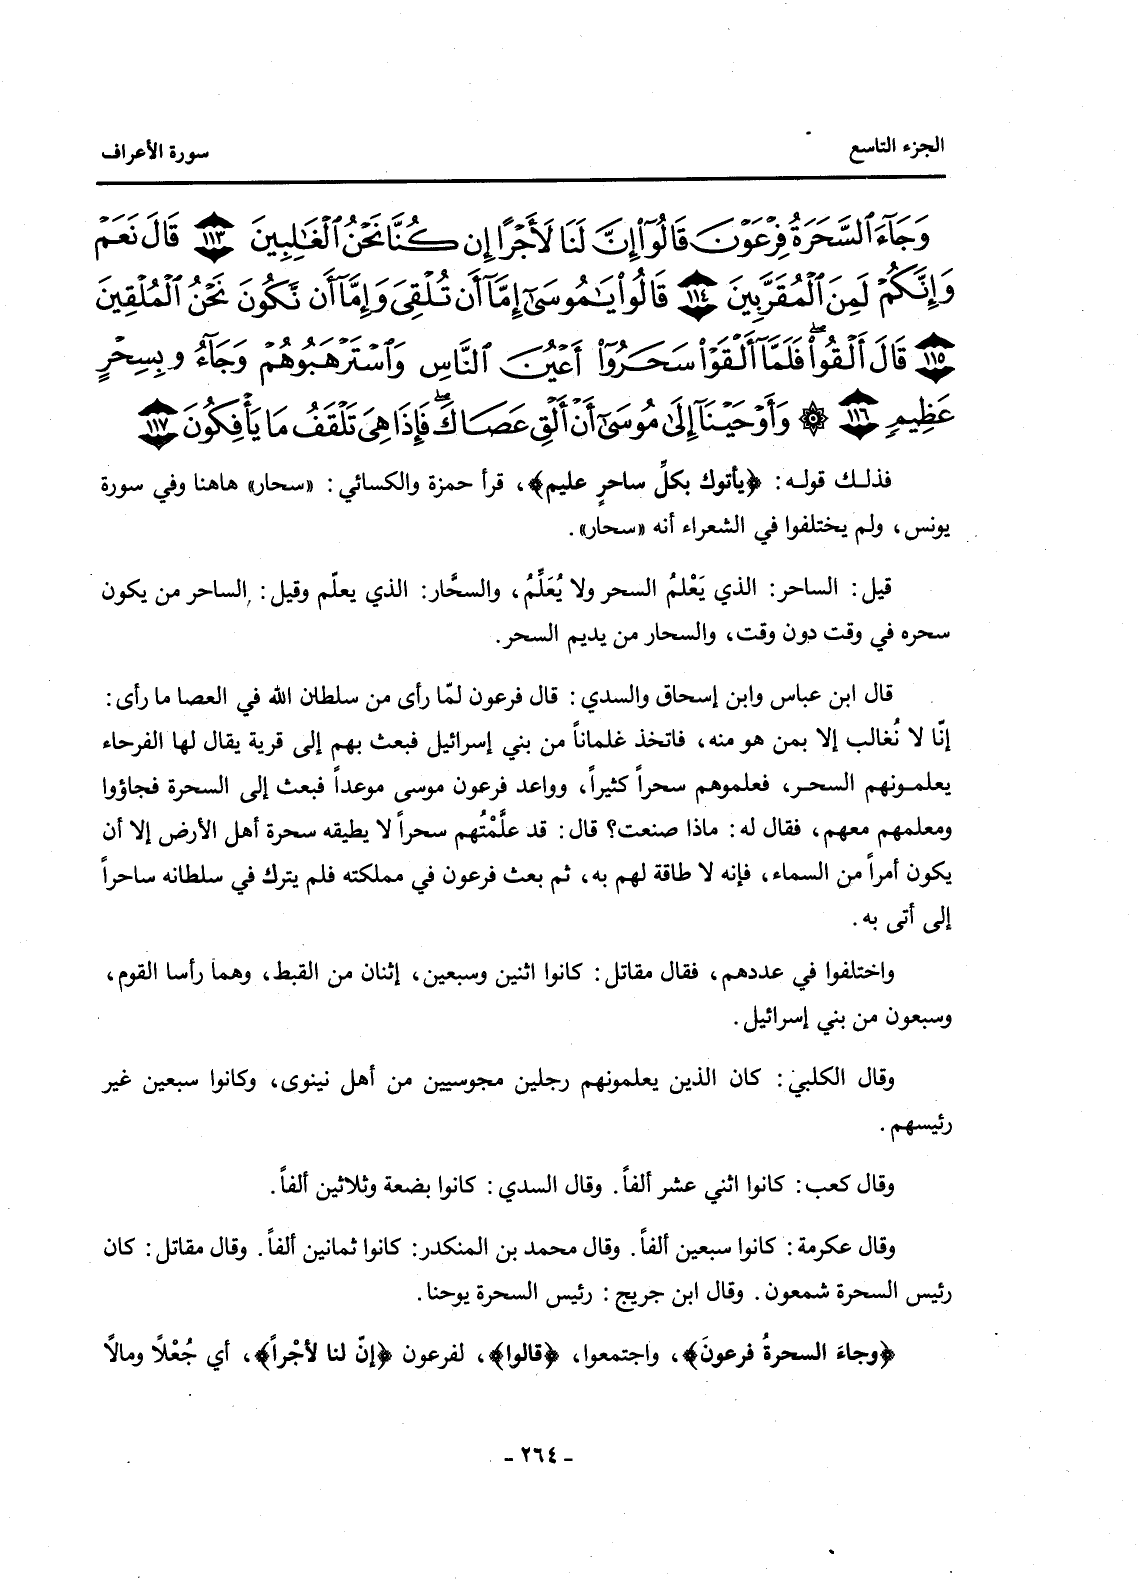 الجزء التاسع
سورة الأعراف
وَجَآءَ ٱلسَّحَرَةُ فِرۡعَوۡنَ قَالُوٓاْ إِنَّ لَنَا لَأَجۡرًا إِن كُنَّا نَحۡنُ ٱلۡغَٰلِبِينَ ١١٣ قَالَ نَعَمۡ
وَإِنَّكُمۡ لَمِنَ ٱلۡمُقَرَّبِينَ ١١٤ قَالُواْ يَٰمُوسَىٰٓ إِمَّآ أَن تُلۡقِيَ وَإِمَّآ أَن نَّكُونَ نَحۡنُ ٱلۡمُلۡقِينَ
١١٥ قَالَ أَلۡقُواْۖ فَلَمَّآ أَلۡقَوۡاْ سَحَرُوٓاْ أَعۡيُنَ ٱلنَّاسِ وَٱسۡتَرۡهَبُوهُمۡ وَجَآءُو بِسِحۡرٍ
عَظِيمٖ ١١٦ ۞ وَأَوۡحَيۡنَآ إِلَىٰ مُوسَىٰٓ أَنۡ أَلۡقِ عَصَاكَۖ فَإِذَا هِيَ تَلۡقَفُ مَا يَأۡفِكُونَ ١١٧
فذلك قوله: ﴿يأتوك بكلِّ ساحرٍ عليم﴾، قرأ حمزة والكسائي: «سحار» هاهنا وفي سورة
يونس، ولم يختلفوا في الشعراء أنه «سحار».
قيل: الساحر: الذي يَعْلمُ السحر ولا يُعَلِّمُ، والسحَّار: الذي يعلّم وقيل: الساحر من يكون
سحره في وقت دون وقت، والسحار من يديم السحر.
قال ابن عباس وابن إسحاق والسدي: قال فرعون لمّا رأى من سلطان الله في العصا ما رأى:
إنّا لا نُغالب إلا بمن هو منه، فاتخذ غلماناً من بني إسرائيل فبعث بهم إلى قرية يقال لها الفرحاء
يعلمونهم السحر، فعلموهم سحراً كثيراً، وواعد فرعون موسى موعداً فبعث إلى السحرة فجاؤوا
ومعلمهم معهم، فقال له: ماذا صنعت؟ قال: قد علَّمْتُهم سحراً لا يطيقه سحرة أهل الأرض إلا أن
يكون أمراً من السماء، فإنه لا طاقة لهم به، ثم بعث فرعون في مملكته فلم يترك في سلطانه ساحراً
إلى أتى به.
واختلفوا في عددهم، فقال مقاتل: كانوا اثنين وسبعين، إثنان من القبط، وهما رأسا القوم،
وسبعون من بني إسرائيل.
وقال الكلبي: كان الذين يعلمونهم رجلين مجوسيين من أهل نينوى، وكانوا سبعين غير
رئيسهم.
وقال كعب: كانوا اثني عشر ألفاً. وقال السدي: كانوا بضعة وثلاثين ألفاً.
وقال عكرمة: كانوا سبعين ألفاً. وقال محمد بن المنكدر: كانوا ثمانين ألفاً. وقال مقاتل: كان
رئيس السحرة شمعون. وقال ابن جريج: رئيس السحرة يوحنا.
﴿وجاءَ السحرةُ فرعونَ﴾، واجتمعوا، ﴿قالوا﴾، لفرعون ﴿إنّ لنا لأجْراً﴾، أي جُعْلاً ومالاً
- ٢٦٤ -